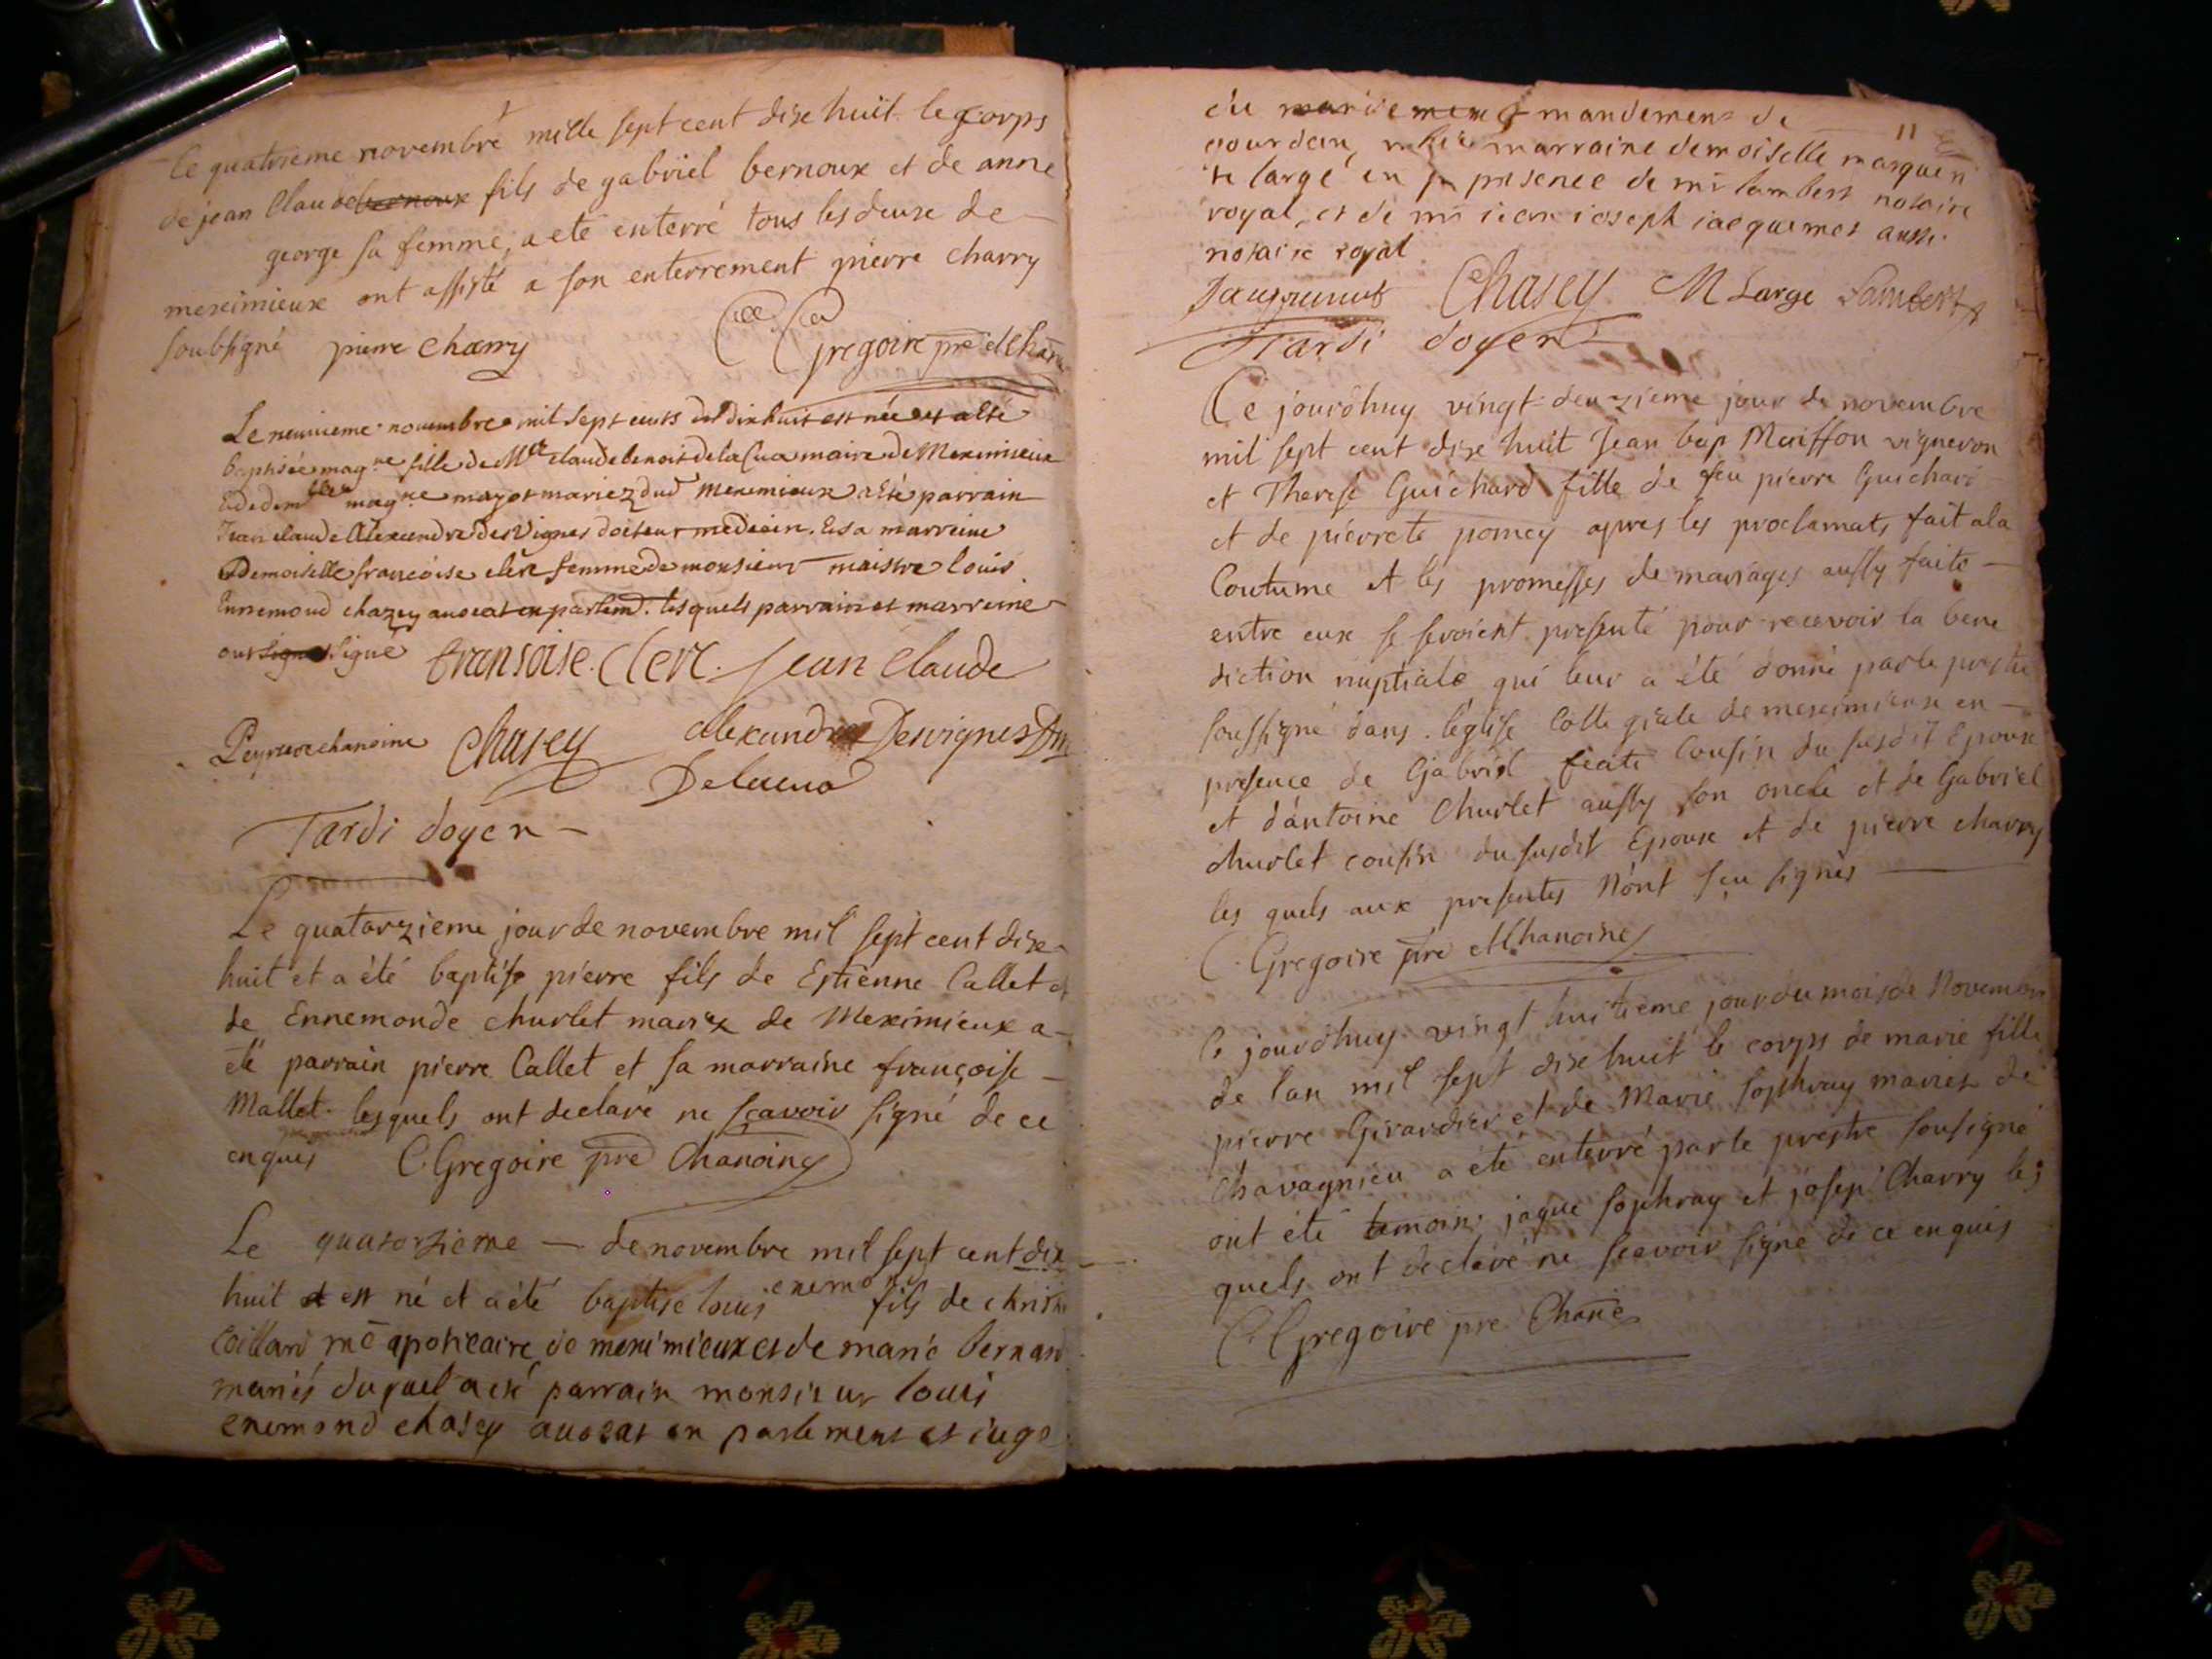 le quatrieme novembre mille sept cent dixe huit le corps
de jean Claude bernoux fils de gabriel bernoux et de anne
george sa femme, a eté enterré tous les deuxe de
meximieuxe ont assisté a son enterrement pierre charry
soubsigné pierre charry
Gregoire pre et chan
Le neuvieme novembre mil sept cents dix huit est née et a esté
baptisée magne fille de Mre claude benoist de la Cua maire de Meximieux
Et de demlle magne mayot mariez dud Meximieux a esté parrain
Jean claude Alexandre des Vignes docteur medecin. Et sa marreine
Demoiselle françoise clerc femme de monsieur maistre louis
Ennemond chazey avocat en parlemt. lesquels parrain et marreine
ont signé signé fransoise. Clerc. Jean Claude
Peyreaux chanoine Chasey alexandre Desvignes
Delacua
Tardi doyen
Le quatorzieme jour de novembre mil sept cent dixe
huit et a été baptise pierre fils de Estienne Callet et
de Ennemonde churlet mariez de Meximieux a
été parrain pierre Callet et sa marraine françoise
Mallet. lesquels ont declaré ne sçavoir signé de ce
enquis C Gregoire pre Chanoine
Le quatorzieme — de novembre mil sept cent dix
huit et est né et a été baptise loui enemond fils de
me apoticaire de meximieux et de marie bernard
mariés duquel a été parrain monsieur loui
enemond chasey avocat en parlement et iuge
11
du mandement mandement de
marraine demoiselle
large en presence de mr lambert notaire
royal, et de mr iean ioseph iacquemet aussi
notaire royal
Jacquemet Chasey M Large Lambert
Tardi doyen
Ce jourdhuy vingt-deuzieme jour de novembre
mil sept cent dixe huit Jean bap Maisson vigneron
et Therese Guichard fille de feu pierre Guichard
et de pierrete pomey apres les proclamats fait a la
Coutume et les promesses de mariages aussy faite
entre eux se seroient presenté pour recevoir la bene
diction nuptiale qui leur a été donné par le prestre
soussigné dans léglise Collegiale de meximieux en
presence de Gabriel Cousin du susdit Epoux
et dántoine Churlet aussy son oncle et de Gabriel
churlet cousin du susdit Epoux et de pierre charry
les quels aux presentes N'ont sçu signés
C. Gregoire pre et Chanoine
Ce jourdhuy vingt huitieme jour du mois de Novembre
de lan mil sept dixe huit le corps de marie fille
pierre Girardier et de Marie sophray mariez de
Chavagnieu a été enterré par le prestre sousigné
ont été temoins jaque sophray et josep Charry les
quels ont declaré ne scavoir signé de ce enquis
C. Gregoire pre Chane